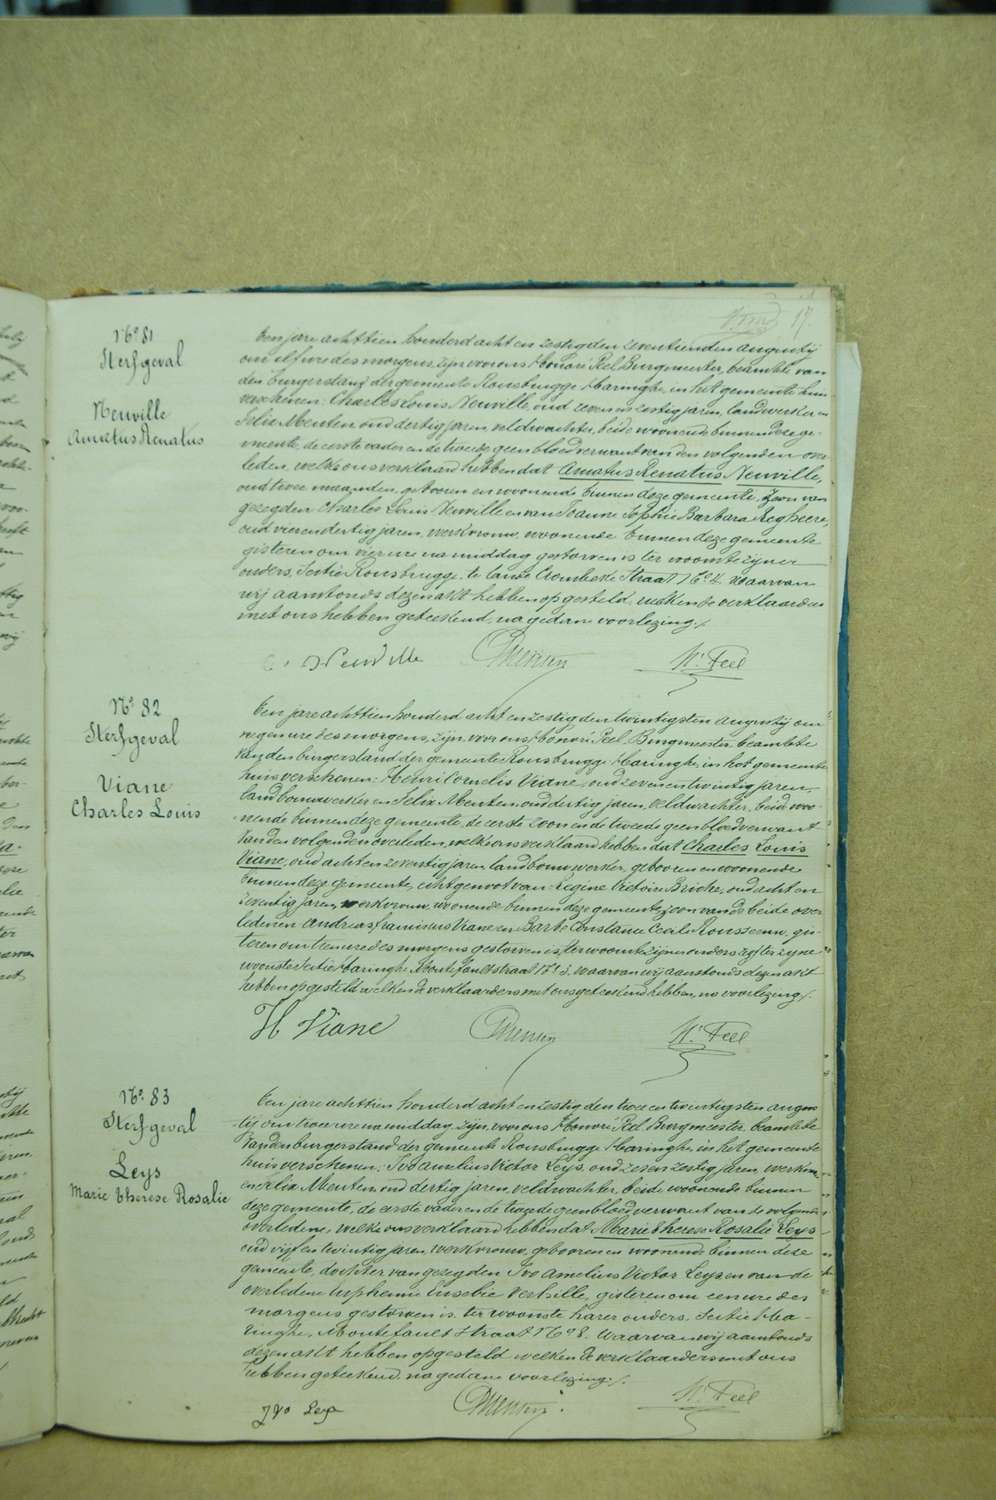 17.
N° 81
Sterfgeval
Neuville
Amatus Renatus
Een jare achttien honderd acht en zestig den zeventienden augustij
om elf ure des morgens, zijn voor ons Honoré Feel Burgmeester, beambte van
den burgerstand der gemeente Rousbrugge Haringhe, in het gemeente huis
verschenen: Charles Louis Neuville, oud zeven en zestig jaren, landwerker en
Felix Menten oud dertig jaren veldwachter, beide woonende binnen deze ge-
meente, de eerste vader en de tweede geen bloedverwant van den volgenden over
leden, welke ons verklaard hebben dat Amatus Renatus Neuville,
oud twee maanden, geboren en woonende binnen deze gemeente, zoon van
gezegden Charles Louis Neuville en van Joanne Sophie Barbara Regheere,
oud vierendertig jaren, werkvrouw, woonende binnen deze gemeente
gisteren om vier ure na middag gestorven is ter woonste zijner
ouders, Sectie Rousbrugge, te lande Crombeke Straat N° 4. Waarvan
wij aanstonds dezen akt hebben opgesteld, welken de verklaarders
met ons hebben geteekend, na gedane voorlezing./.
C. Neuville
Menten
H. Feel
N° 82
Sterfgeval
Viane
Charles Louis
Een jare achttien honderd acht en zestig den twintigsten augustij om
negen ure des morgens, zijn voor ons Honoré Feel Burgmeester, beambte
van den burgerstand der gemeente Rousbrugge Haringhe, in het gemeente
huis verschenen: Henri Cornelis Viane, oud zeven en twintig jaren,
landbouwwerker en Felix Menten, oud dertig jaren, veldwachter, beide woo-
nende binnen deze gemeente, de eerste zoon en de tweede geen bloedverwant
van den volgenden overleden, welke ons verklaard hebben dat Charles Louis
Viane, oud acht en zeventig jaren, landbouwwerker, geboren en woonende
binnen deze gemeente, echtgenoot van Regine Victoire Brioke, oud acht en
zeventig jaren, werkvrouw, woonende binnen deze gemeente, zoon van de beide over
ledenen Andreas franciscus Viane en Barbe Constance Cecile Rousseeuw, gis-
teren om tien ure des morgens gestorven is, ter woonste
woonste Sectie Haringhe, straat waarvan wij aanstonds dezen akt
hebben opgesteld welken de verklaarders met ons geteekend hebben, na voorlezing./.
H Viane
Menten
H. Feel
N° 83
Sterfgeval
Leys
Marie Therese Rosalie
Een jare achttien honderd acht en zestig den twee en twintigsten augus-
tij om twee ure na middag, zijn voor ons Honoré Feel Burgmeester, beambte
van den burgerstand der gemeente Rousbrugge Haringhe, in het gemeente
huis verschenen: Ivo Amelius Victor Leys, oud zes en zestig jaren, werkman
en Felix Menten, oud dertig jaren, veldwachter, beide woonende binnen
deze gemeente, de eerste vader en de tweede geen bloedverwant van de volgende
overledene, welke ons verklaard hebben dat Marie Therese Rosalie Leys
oud vijf en twintig jaren, werkvrouw, geboren en woonende binnen deze
gemeente, dochter van gezegden Ivo Amelius Victor Leys en van de
overledene Euphemie Eusebie Verhille, gisteren om een ure des
morgens gestorven is, ter woonste harer ouders, Sectie Ha-
ringhe, straat N° 8. Waarvan wij aanstonds
dezen akt hebben opgesteld welken de verklaarders met ons
hebben geteekend, na gedane voorlezing./.
Ivo Leys
Menten
H. Feel